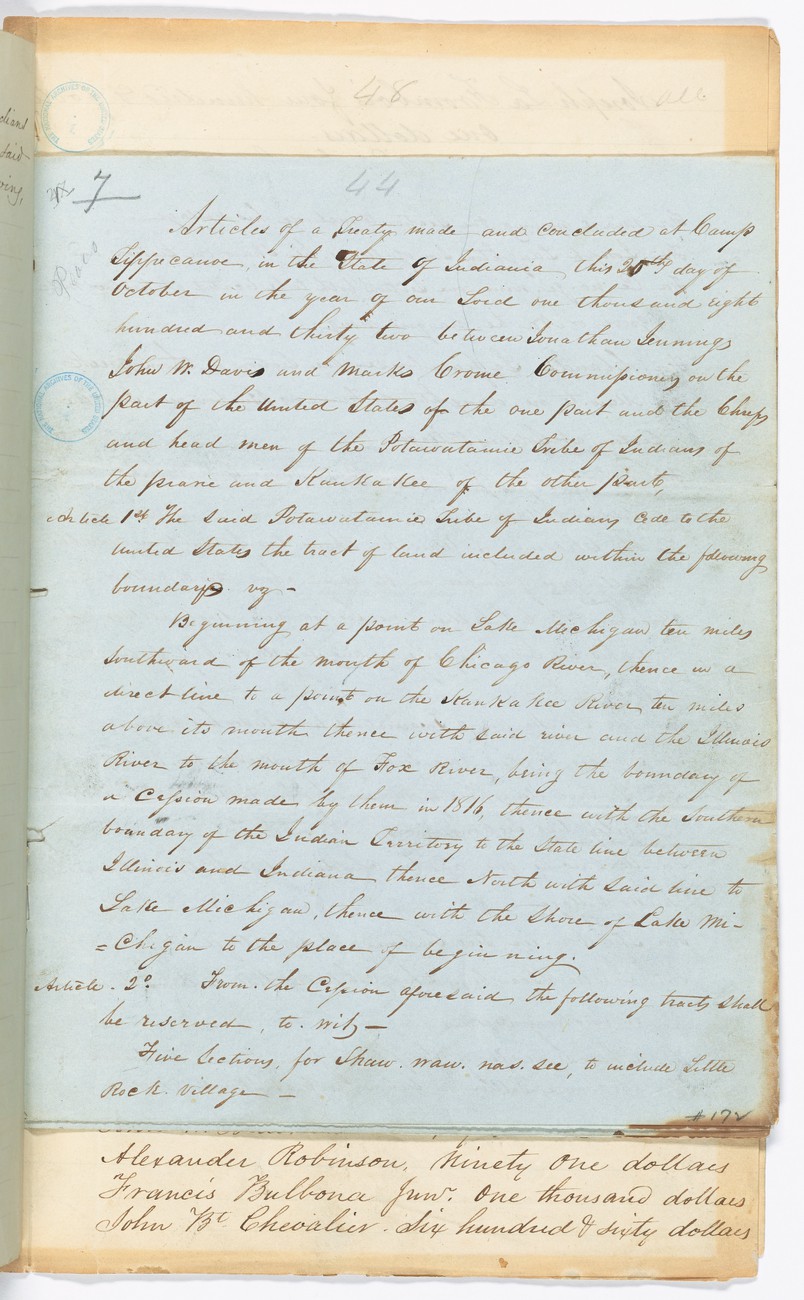 48
7
44
Articles of a Treaty made and concluded at Camp
Tippecanoe, in the State of Indiania this 20th day of
October in the year of our Lord one thousand eight
hundred and thirty two between Jonathan Jennings
John W. Davis and Marks Crome Commissioners on the
part of the United States of the one part and the Chiefs
and head men of the Potawatamie Tribe of Indians of
the prarie and Kankakee of the other part,
Article 1st The said Potawatamie Tribe of Indians cede to the
United States the tract of land included within the following
boundary viz -
Beginning at a point on Lake Michigan ten miles
Southward of the mouth of Chicago River, thence in a
direct line to a point on the Kankakee River ten miles
above its mouth thence with said river and the Illinois
River to the mouth of Fox River, being the boundary of
a Cession made by them in 1816, thence with the Southern
boundary of the Indian Territory to the State line between
Illinois and Indiana thence North with said line to
Lake Michigan, thence with the shore of Lake Mi-
=Chigan to the place of begin ning.
Article. 2d. From. the Cession aforesaid the following tracts shall
be reserved, to. wit, -
Five Sections, for Shaw. waw. nas. see, to include Little
Rock. Village -
#172
Alexander Robinson. Ninety One dollars
Francis Bulbona Junr. One thousand dollars
John Bt. Chevalier. Six hundred & sixty dollars
dians
said
ving,